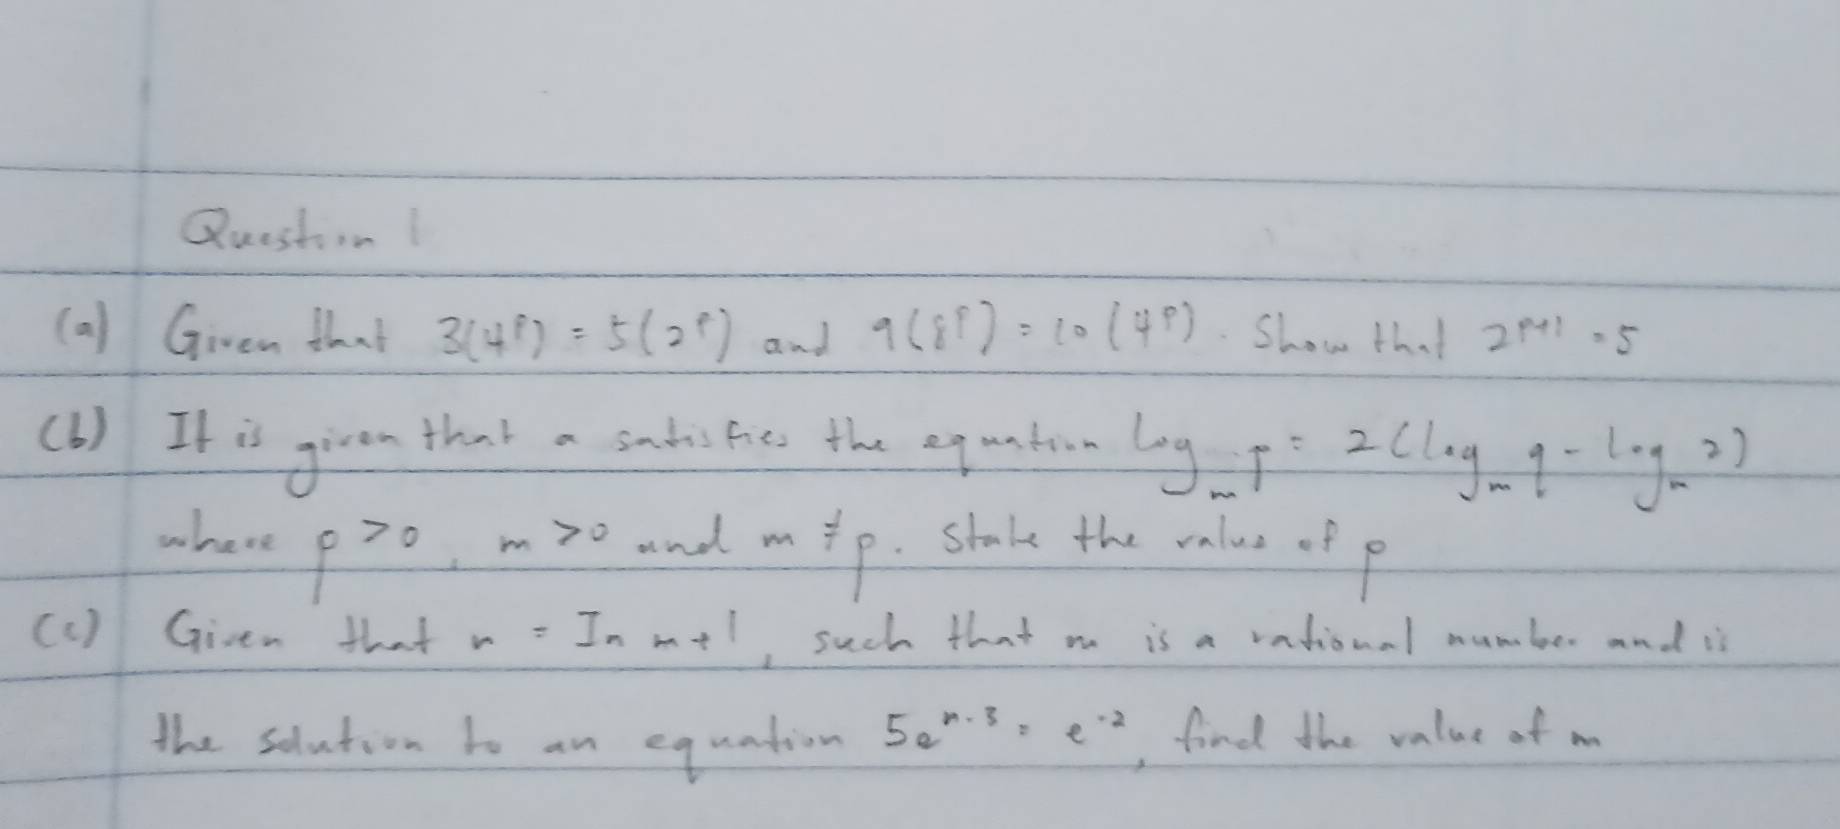 Question 1
(a) Given that 3(4^p) = 5(2^p) and 9(8^p) = 10(4^p). Show that 2^{p+1} = 5
(b) It is given that a satisfies the equation log_m p = 2(log_m q - log_m 2)
where p > 0, m > 0 and m ≠ p. State the value of p
(c) Given that n = In m + 1, such that m is a rational number and is
the solution to an equation 5e^{n-3} = e^{-2}, find the value of m